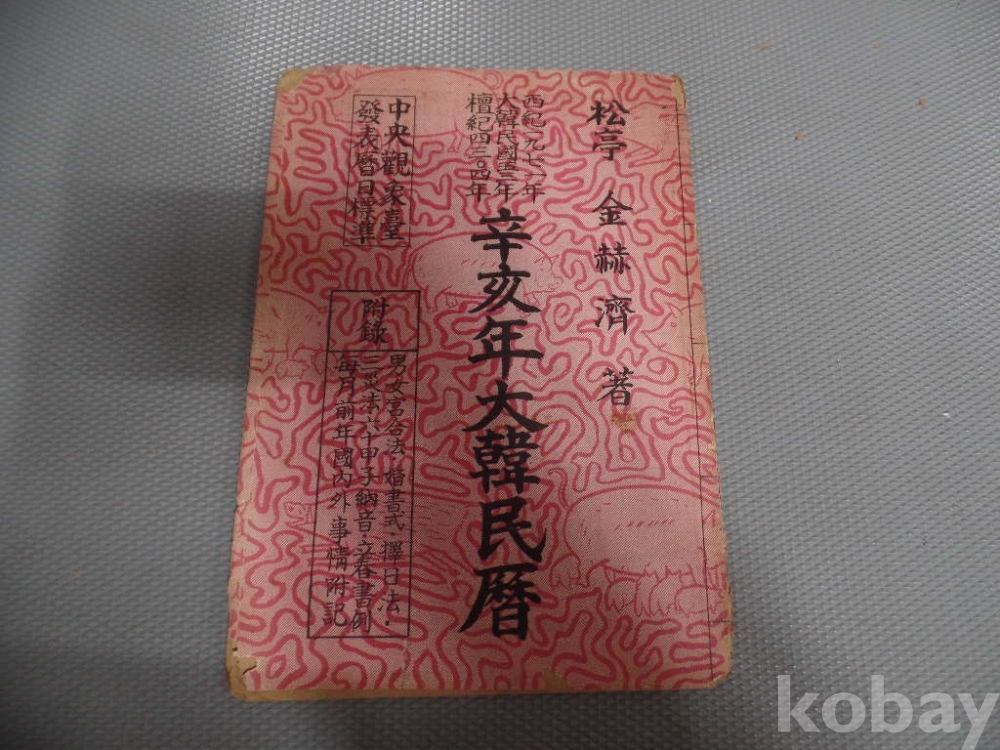 松亭 金赫濟 著
西紀一九七一年
大韓民國五三年
檀紀四三〇四年
辛亥年大韓民曆
中央觀象臺
發表曆日標準
附錄
男女宮合法·婚書式·擇日法·
三災法六十甲子納音·立春書例
每月前年國內外事情附記
kobay